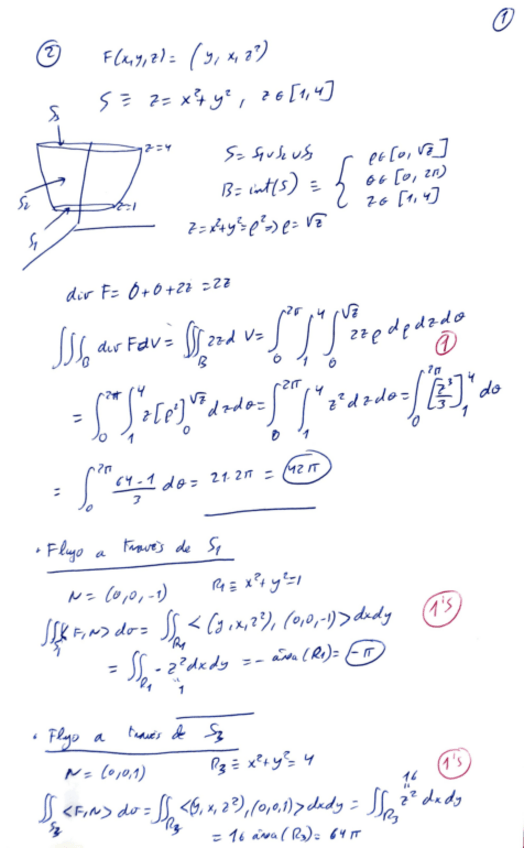 1
2 F(x,y,z) = (y, x, z²)
S ≡ z = x²+y², z ∈ [1,4]
S
z=4
S₂
z=1
S₁
S = S₁ ∪ S₂ ∪ S₃
B = int(S) ≡ { ρ ∈ [0, √z]
θ ∈ [0, 2π)
z ∈ [1,4]
z = x²+y² = ρ² ⇒ ρ = √z
div F = 0+0+2z = 2z
∭_B div F dV = ∭_B 2z dV = ∫₀^{2π} ∫₁^4 ∫₀^{√z} 2z ρ dρ dz dθ
1
= ∫₀^{2π} ∫₁^4 z[ρ²]₀^{√z} dz dθ = ∫₀^{2π} ∫₁^4 z² dz dθ = ∫₀^{2π} [z³/3]₁^4 dθ
= ∫₀^{2π} (64-1)/3 dθ = 21·2π = 42π
· Flujo a través de S₁
N = (0,0,-1) R₁ ≡ x²+y²=1
1's
∬_{S₁} <F,N> dσ = ∬_{R₁} <(y,x,z²), (0,0,-1)> dx dy
= ∬_{R₁} - z² dx dy = - área (R₁) = -π
1
· Flujo a través de S₃
N = (0,0,1) R₃ ≡ x²+y² = 4
1's
16
∬_{S₃} <F,N> dσ = ∬_{R₃} <(y,x,z²), (0,0,1)> dx dy = ∬_{R₃} z² dx dy
= 16 área (R₃) = 64π